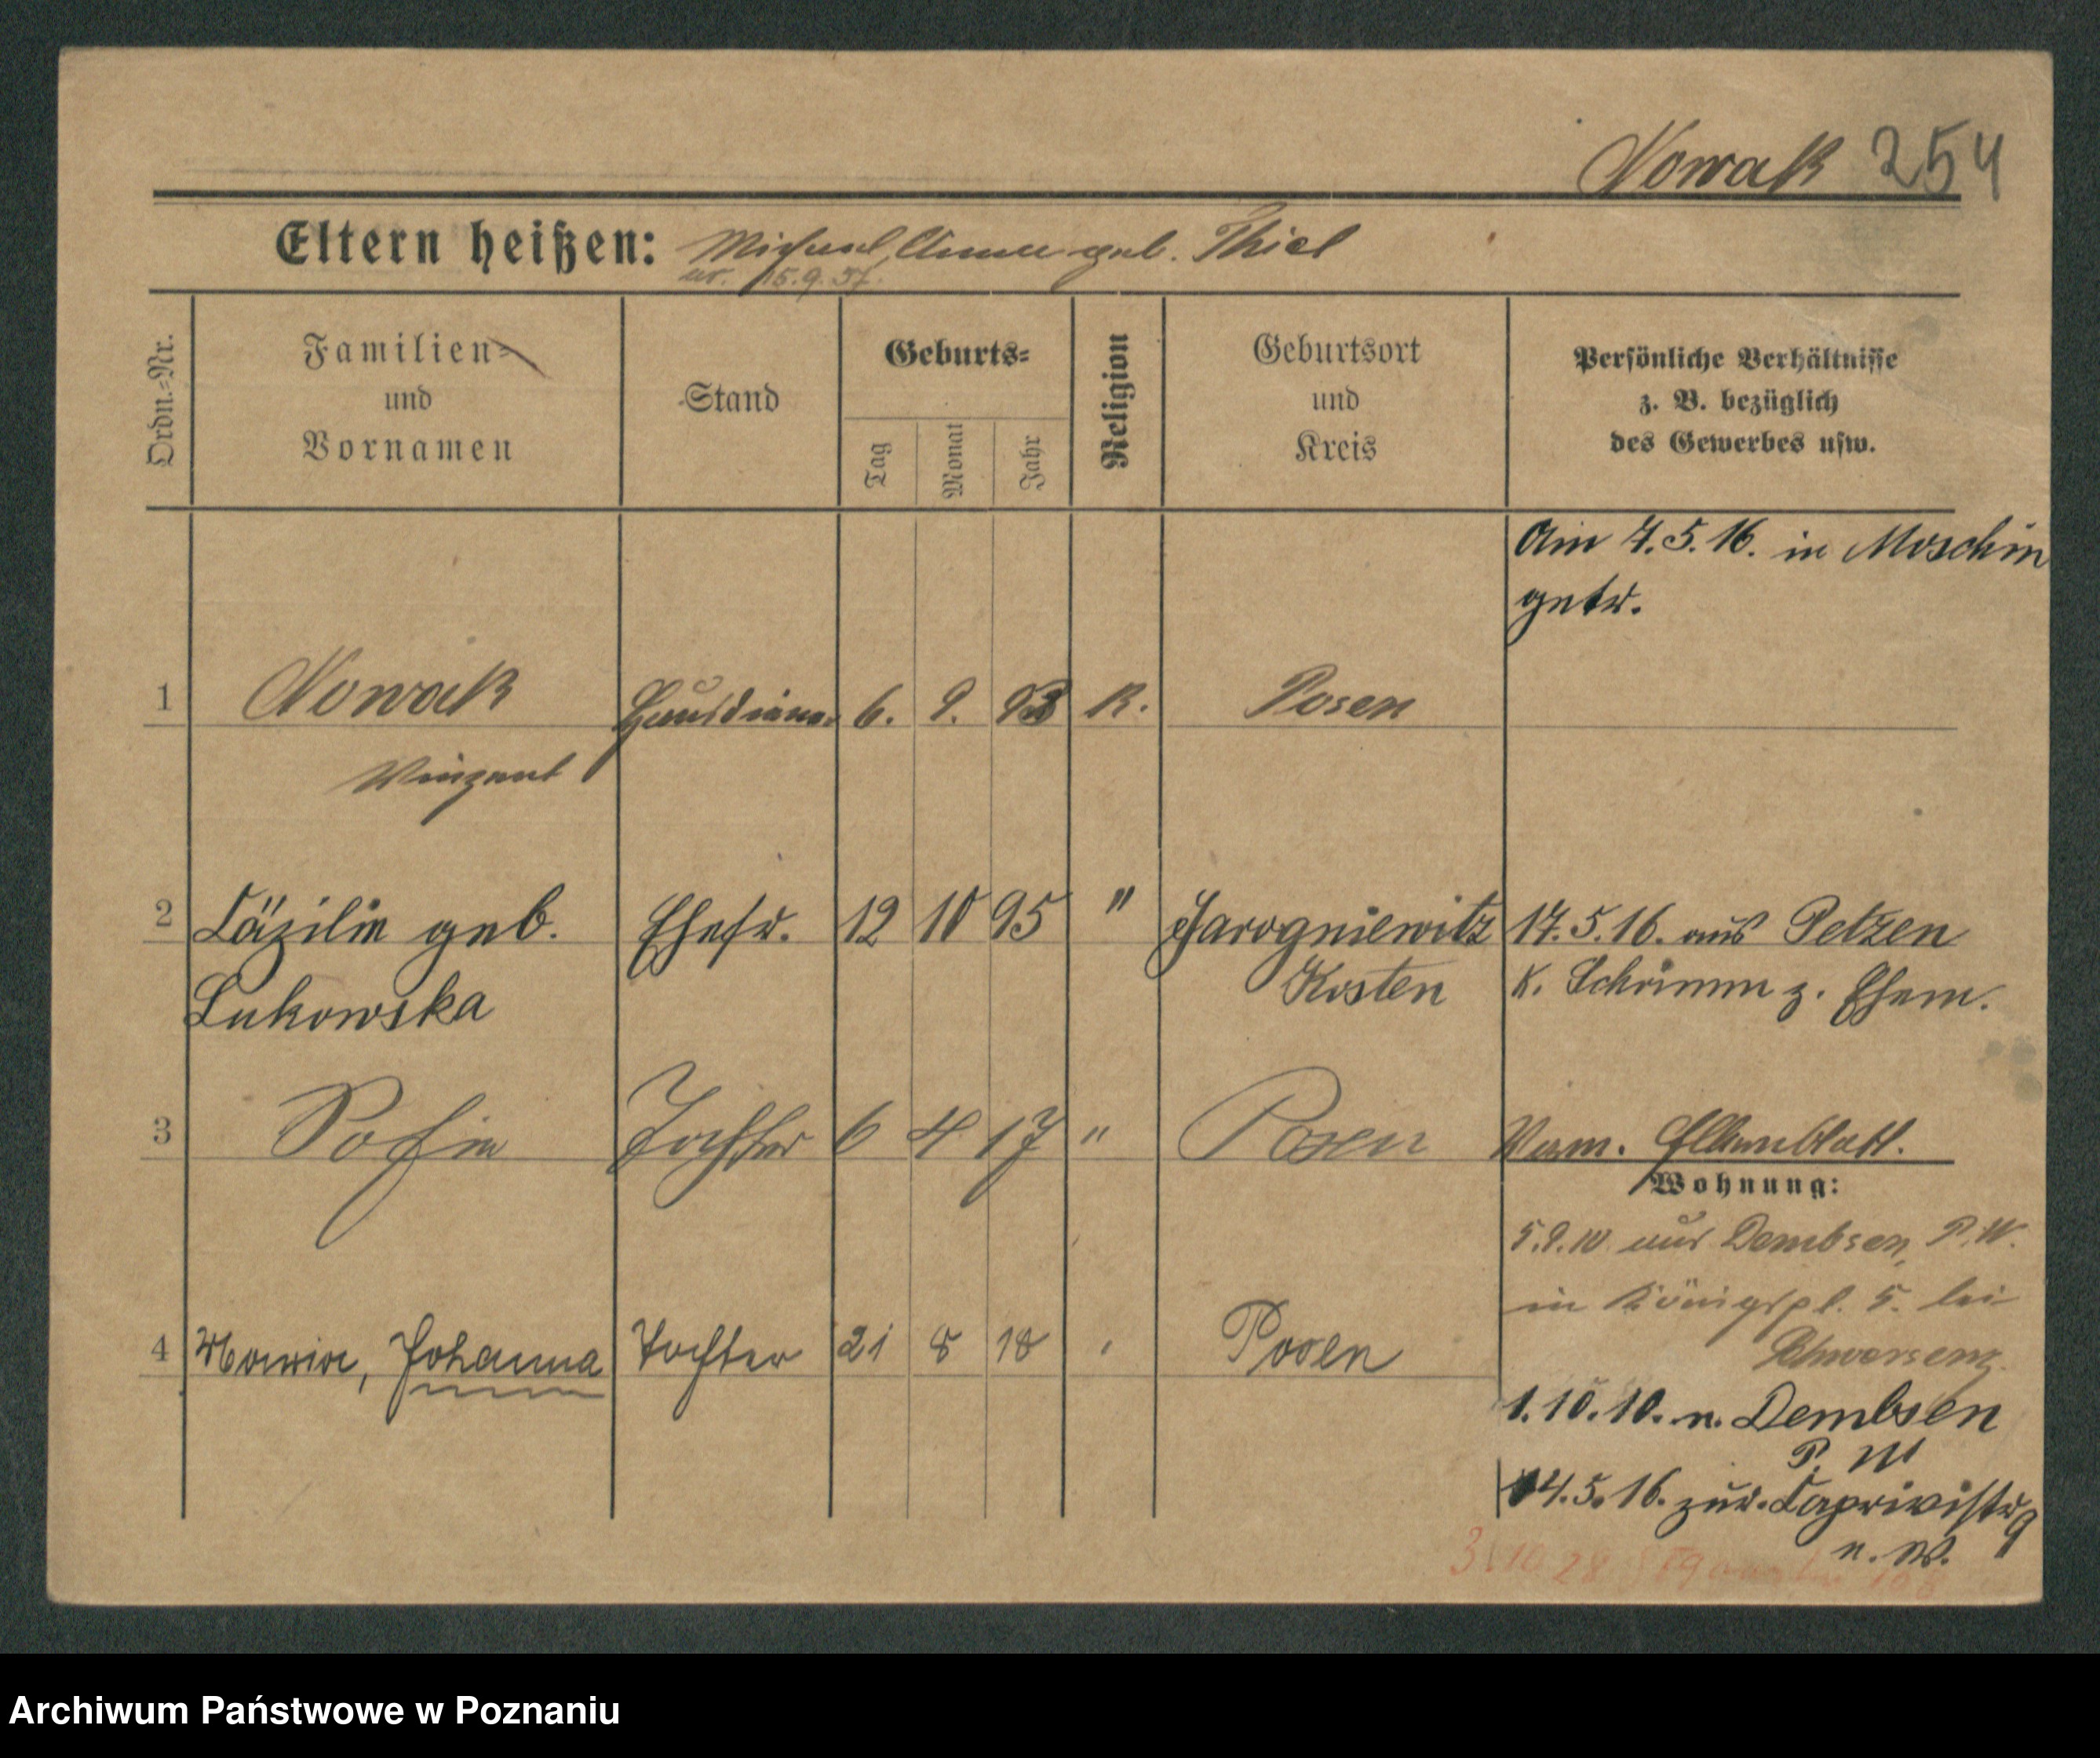 Nowak 254
Eltern heißen: Michael, Anna geb. Thiel
15.9.57.
Ordn.-Nr.
Familien-
und
Vornamen
Stand
Geburts-
Tag
Monat
Jahr
Religion
Geburtsort
und
Kreis
Persönliche Verhältnisse
z. B. bezüglich
des Gewerbes usw.
Am 7.5.16. in Moschin
getr.
1 Nowak Hausdiener 6. 9. 93 K. Posen
Vinzent
2 Cäzilie geb. Ehefr. 12 10 95 " Jarogniewitz 17.5.16. aus Petzen
Lukowska Kosten K. Schrimm z. Ehem.
3 Sofie Tochter 6 4 17 " Posen Verm.
Wohnung:
5.9.10 aus Dembsen, P.W.
in Königspl. 5. bei
4 Maria, Johanna Tochter 21 8 18 Posen
1.10.10. n. Dembsen
P. W
14.5.16. zur. Caprivistr 9
3.10 28
Archiwum Państwowe w Poznaniu